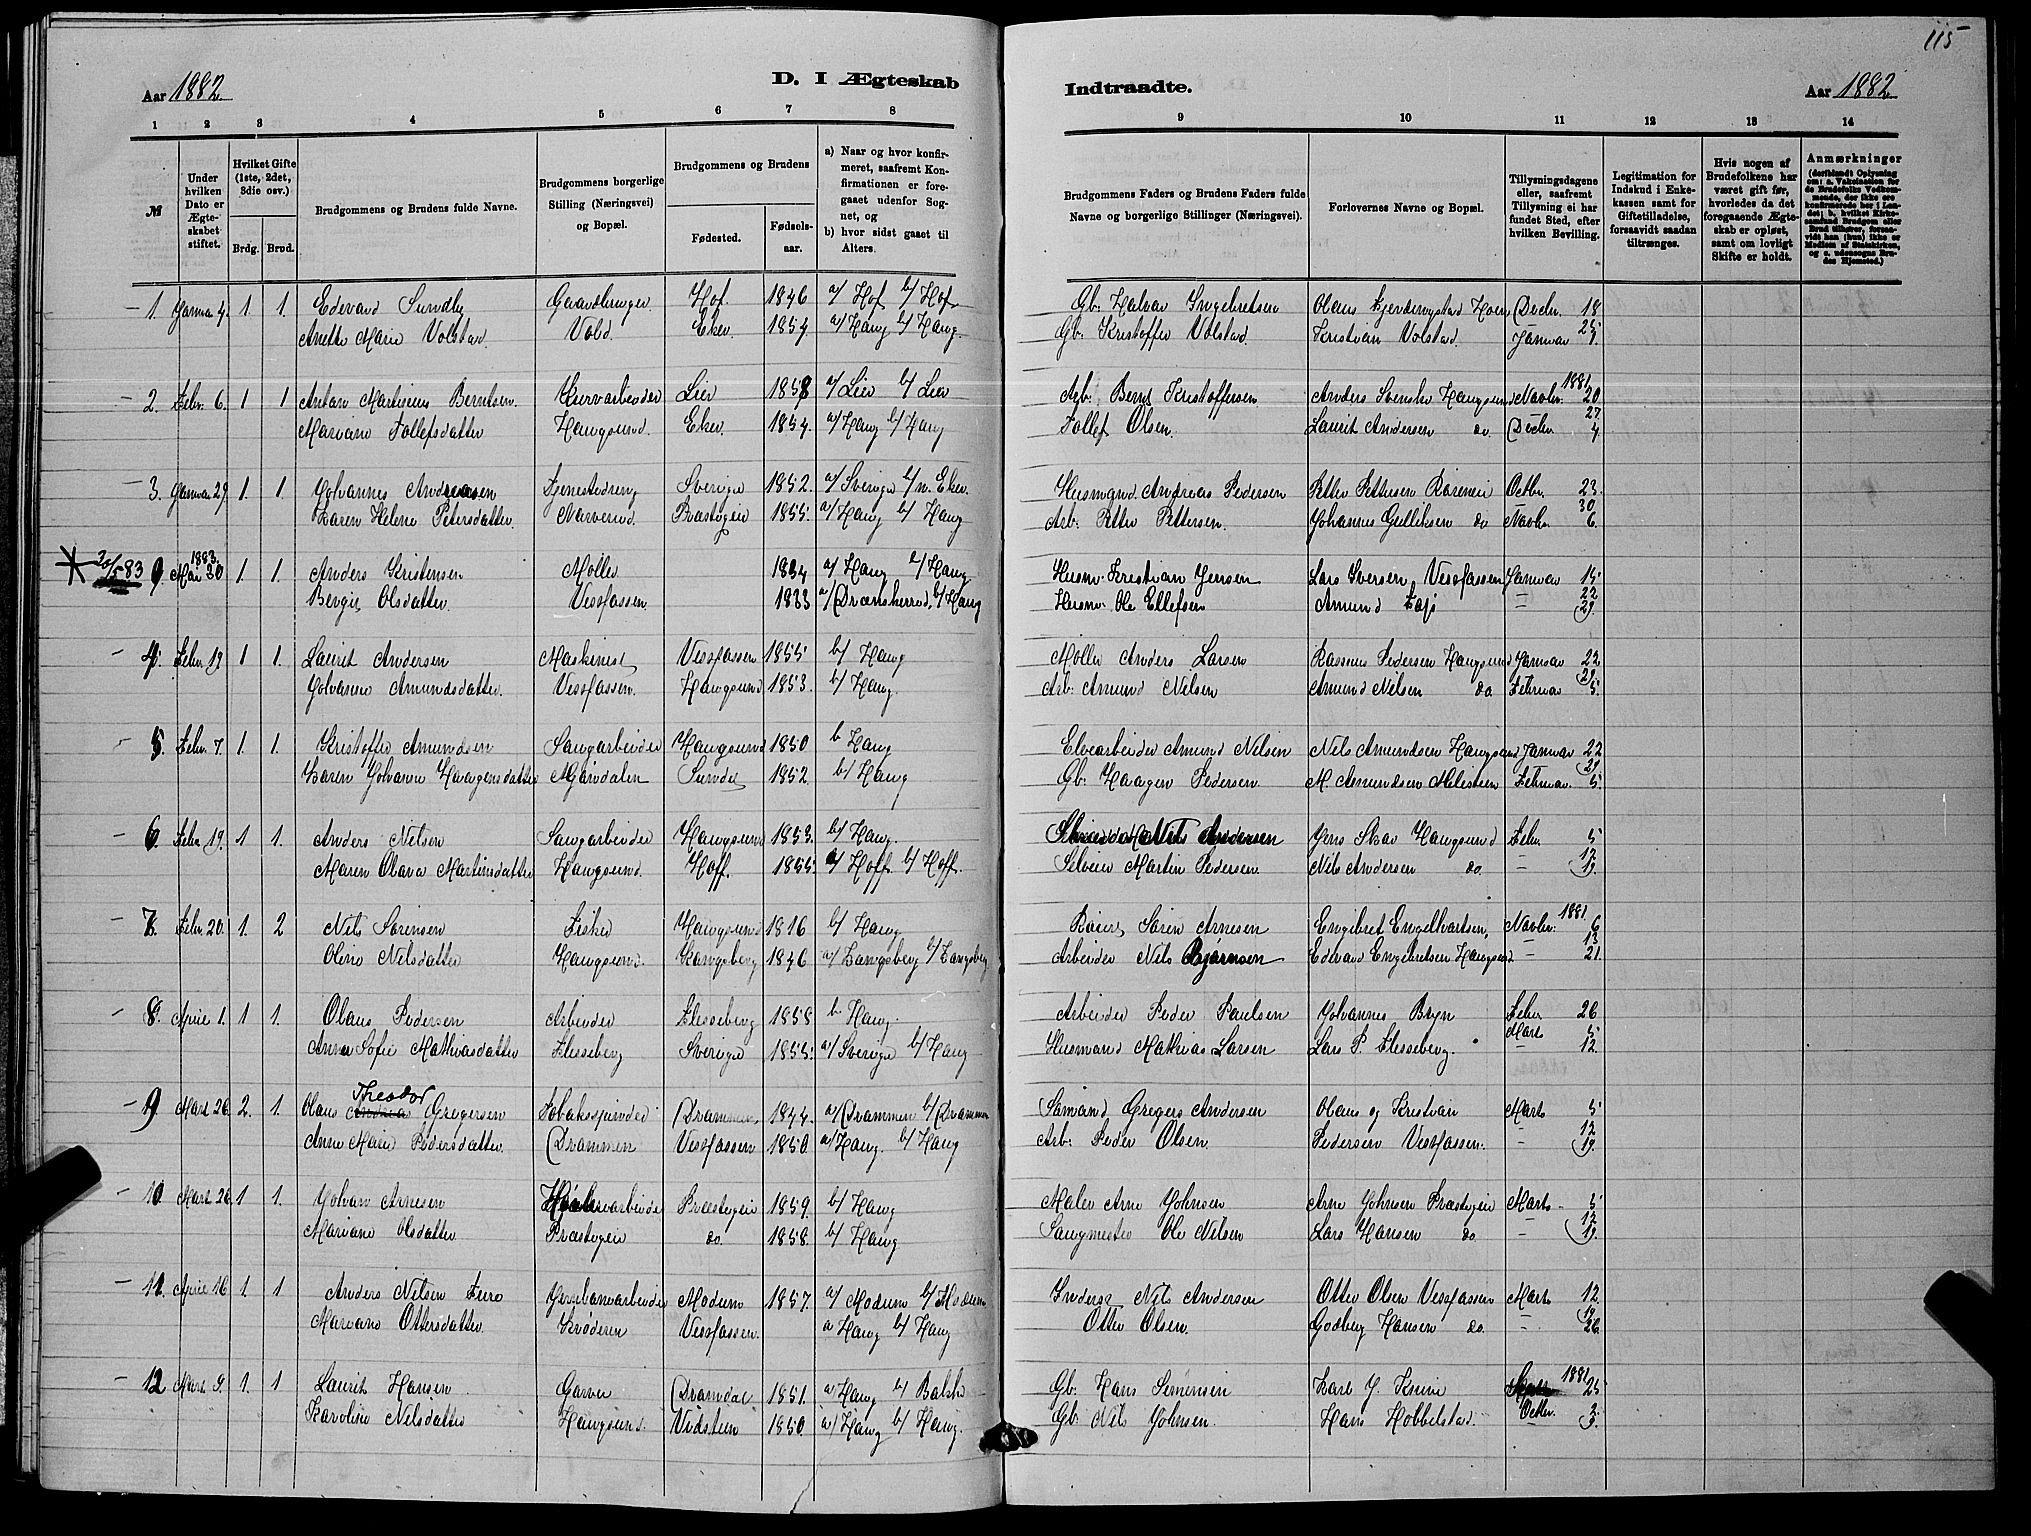 115
Aar 1882.
D. I Ægteskab
Indtraadte.
Aar 1882
1 2 3 4 5 6 7 8 9 10 11 12 13 14
№
Under hvilken Dato er Ægteskabet stiftet.
Hvilket Gifte (1ste, 2det, 3die osv.)
Brdg. Brud.
Brudgommens og Brudens fulde Navne.
Brudgommens borgerlige Stilling (Næringsvei) og Bopæl.
Brudgommens og Brudens
Fødested.
Fødselsaar.
a) Naar og hvor konfirmeret, saafremt Konfirmationen er foregaaet udenfor Sognet, og
b) hvor sidst gaaet til Alters.
Brudgommens Faders og Brudens Faders fulde Navne og borgerlige Stillinger (Næringsvei).
Forlovernes Navne og Bopæl.
Tillysningsdagene eller, saafremt Tillysning ei har fundet Sted, efter hvilken Bevilling.
Legitimation for Indskud i Enkekassen samt for Giftetilladelse, forsaavidt saadan tiltrænges.
Hvis nogen af Brudefolkene har været gift før, hvorledes da det foregaaende Ægteskab er opløst, samt om lovligt Skifte er holdt.
Anmærkninger (deriblandt Oplysning om: a. Vakcination for de Brudefolks Vedkommende, der ikke ere konfirmerede her i Landet; b. hvilket Kirkesamfund Brudgom eller Brud tilhører, forsaavidt han (hun) ikke er Medlem af Statskirken, og c. udensogns Brudes Hjemsted.)
1. Januar 4. 1 1. Edevard Sundby Gaardbruger Hof. 1846 a/ Hof b/ Hof Gb. Halvor Ingebretsen Olaus Hoen Decbr. 18
Anette Marie Volstad. Vold. Eker. 1854 a/ Haug b/ Haug. Gb. Kristoffer Volstad. Kristian Volstad. 25 Januar 1.
2. Febr. 6. 1 1 Anton Martinius Berntsen. Lier 1858 a/ Lier b/ Lier Arb. Bernt Kristoffersen Anders Svenske Haugsund 1881 Novbr. 20
Mariane Tollefsdatter Haugsund. Eker. 1854. a/ Haug b/ Haug Tollef Olsen. Laurit Andersen do. 27 Decbr 4
3. Januar 29. 1. 1. Johannes Andreasen Tjenestedreng Sverige 1852. a/ Sverige b/ n. Eker. Husmand Andreas Pedersen Petter Pettersen Octbr. 23.
Karen Helene Petersdatter. Narverud. Præstegen 1855. a/ Haug b/ Haug Arb: Petter Pettersen. Johannes Gulliksen do 30 Novbr 6.
30/5 83 9. 1883. Mai 30 1. 1. Anders Kristensen Møller 1834 a/ Haug b/ Haug Husm. Kristian Jensen Lars Iversen Vestfossen Januar 15
Bergit Olsdatter. Vestfossen. 1833 a/ b/ Haug Husm. Ole Ellefsen Amund 22 29.
4. Febr. 19 1 1. Laurit Andersen Maskinist Vestfossen 1855 b/ Haug Møller Anders Larsen Rasmus Pedersen Haugsund Januar 22
Johanne Amundsdatter. Vestfossen. Haugsund 1853. b/ Haug. Arb: Amund Nilsen Amund Nilsen do. 29 Februar 5.
5. Febr. 7. 1. 1. Kristoffer Amundsen Saugarbeider Haugsund 1850 b Haug Elvearbeider Amund Nilsen Nils Amundsen Haugsund Januar 22
Karen Johanne Haagensdatter Mjøndalen Sunde 1852 b/ Haug Gb: Haagen Pedersen. M. Asmundsen Milesteen 29 Februar. 5.
6. Febr 19. 1 1. Anders Nilsen Saugarbeider Haugsund 1853. b/ Haug. Nils Andersen Jens Skov Haugsund Febr. 5
Maren Olava Martinsdatter Haugsund. Hoff. 1855. a/ Hoff b/ Hoff. Selveier Martin Pedersen Nils Andersen do. 12 19.
7. Febr. 20. 1. 2 Nils Sørensen Fisker Haugsund 1816 b/ Haug Søren Arnesen Engebret Engelbartsen, 1881 Novbr. 6
Oline Nilsdatter Haugsund. Kongsberg 1846 a/ Kongsberg b/ Kongsberg Arbeider Nils Bjørnsen Edevard Engebretsen Haugsund 13 21.
8. April 1. 1 1. Olaus Pedersen Arbeider Flesseberg 1858 b Haug. Arbeider Peder Paulsen Johannes Bryn Febr 26
Anne Sofie Mathiasdatter Flesseberg Sverige 1855. a/ Sverige b/ Haug Husmand Mathias Larsen Lars P. Flesseberg. Mart 5 12.
9 Mart 26 2. 1. Olaus Theodor Gregersen Tobakspinder Drammen 1844. a/ Drammen b/ Drammen Sømand Gregers Andersen Olaus og Kristian Marts 5
Anne Marie Pedersdatter. Drammen Vestfossen 1850. a/ Haug. b/ Haug Arb: Peder Olsen. Pedersen Vestfossen. 12 19.
10 Mart 26 1 1. Johan Arnesen Præstegen 1859. b/ Haug Maler Arne Johnsen Arne Johnsen Præstegen Marts 5
Mariane Olsdatter Præstegen do. 1858. b/ Haug Saugmester Ole Nilsen Lars Hansen do 12 19.
11. April 16 1. 1 Anders Nilsen Furo Jernbanearbeider Modum 1857. a/ Modum b/ Modum Inderst Nils Andersen Otter Olsen Vestfossen Marts 12.
Mariane Ottersdatter. Krøderen Vestfossen. a Haug b/ Haug Otter Olsen. Godberg Hansen do. 19 26
12 Mart 9. 1. 1 Laurit Hansen Garver Dramdal 1851. a/ Haug b/ Gb: Hans Simensen Karl J. Knive 1881 25
Karoline Nilsdatter Haugsund. Vidsteen 1850. a/ Haug b/ Haug. Gb Nils Johnsen. Hans Hobbelstad. Octbr. 2. 9.